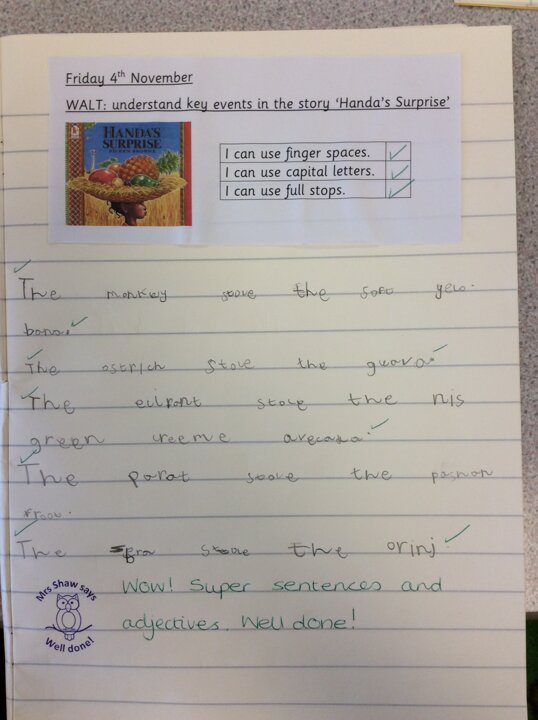 Friday 4th November
WALT: understand key events in the story ‘Handa's Surprise’
HANDA'S
SURPRISE
EILEEN BROWNE
I can use finger spaces.
I can use capital letters.
I can use full stops.
The monkey stole the soft yelo.
The ostrich stole the guava.
The eilront stole the nis
green creeme avecado.
The parat stole the pashon
froot.
The stole the orinj.
Mrs Shaw says
Well done!
Wow! Super sentences and
adjectives. Well done!